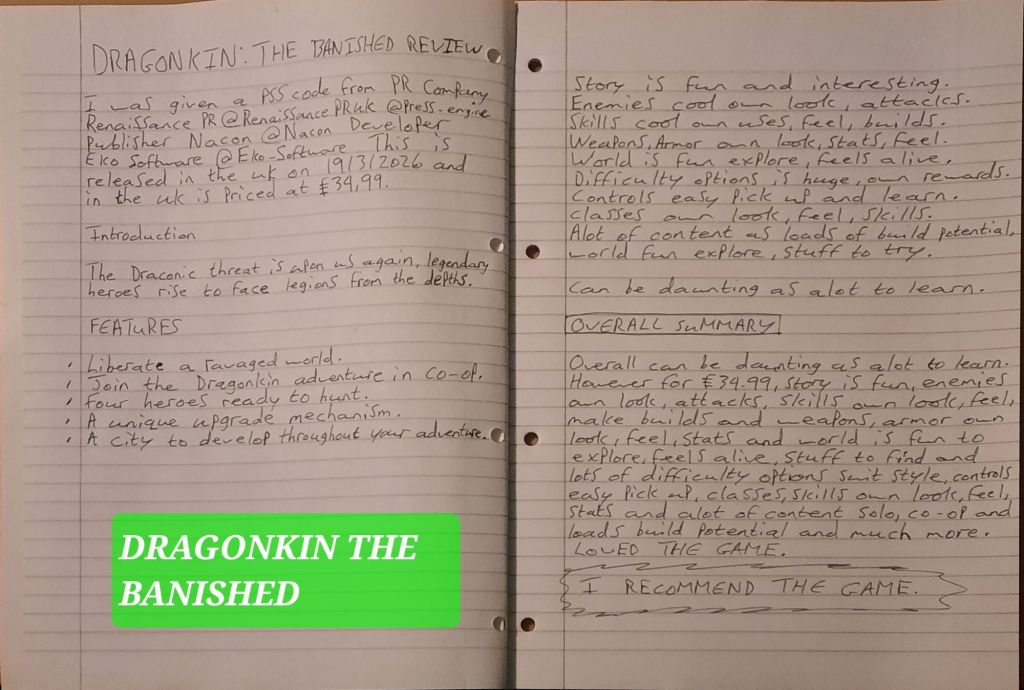 DRAGONKIN: THE BANISHED REVIEW
I was given a PS5 code from PR Company
Renaissance PR @RenaissancePRuk @Press-engine
Publisher Nacon @Nacon Developer
Eko Software @Eko-Software This is
released in the uk on 19/3/2026 and
in the uk is priced at £34,99.
Introduction
The Draconic threat is upon us again, legendary
heroes rise to face legions from the depths.
FEATURES
Liberate a ravaged world.
Join the Dragonkin adventure in co-op.
four heroes ready to hunt.
A unique upgrade mechanism.
A city to develop throughout your adventure.
DRAGONKIN THE
BANISHED
Story is fun and interesting.
Enemies cool own look, attacks.
Skills cool own uses, feel, builds.
Weapons, Armor own look, stats, feel.
World is fun explore, feels alive.
Difficulty options is huge, own rewards.
Controls easy pick up and learn.
classes own look, feel, skills.
Alot of content as loads of build potential,
world fun explore, stuff to try.
Can be daunting as alot to learn.
OVERALL SUMMARY
Overall can be daunting as alot to learn.
However for £34.99, story is fun, enemies
own look, attacks, skills own look, feel,
make builds and weapons, armor own
look, feel, stats and world is fun to
explore, feels alive, stuff to find and
lots of difficulty options suit style, controls
easy pick up, classes, skills own look, feel,
stats and alot of content solo, co-op and
loads build potential and much more.
LOVED THE GAME.
I RECOMMEND THE GAME.